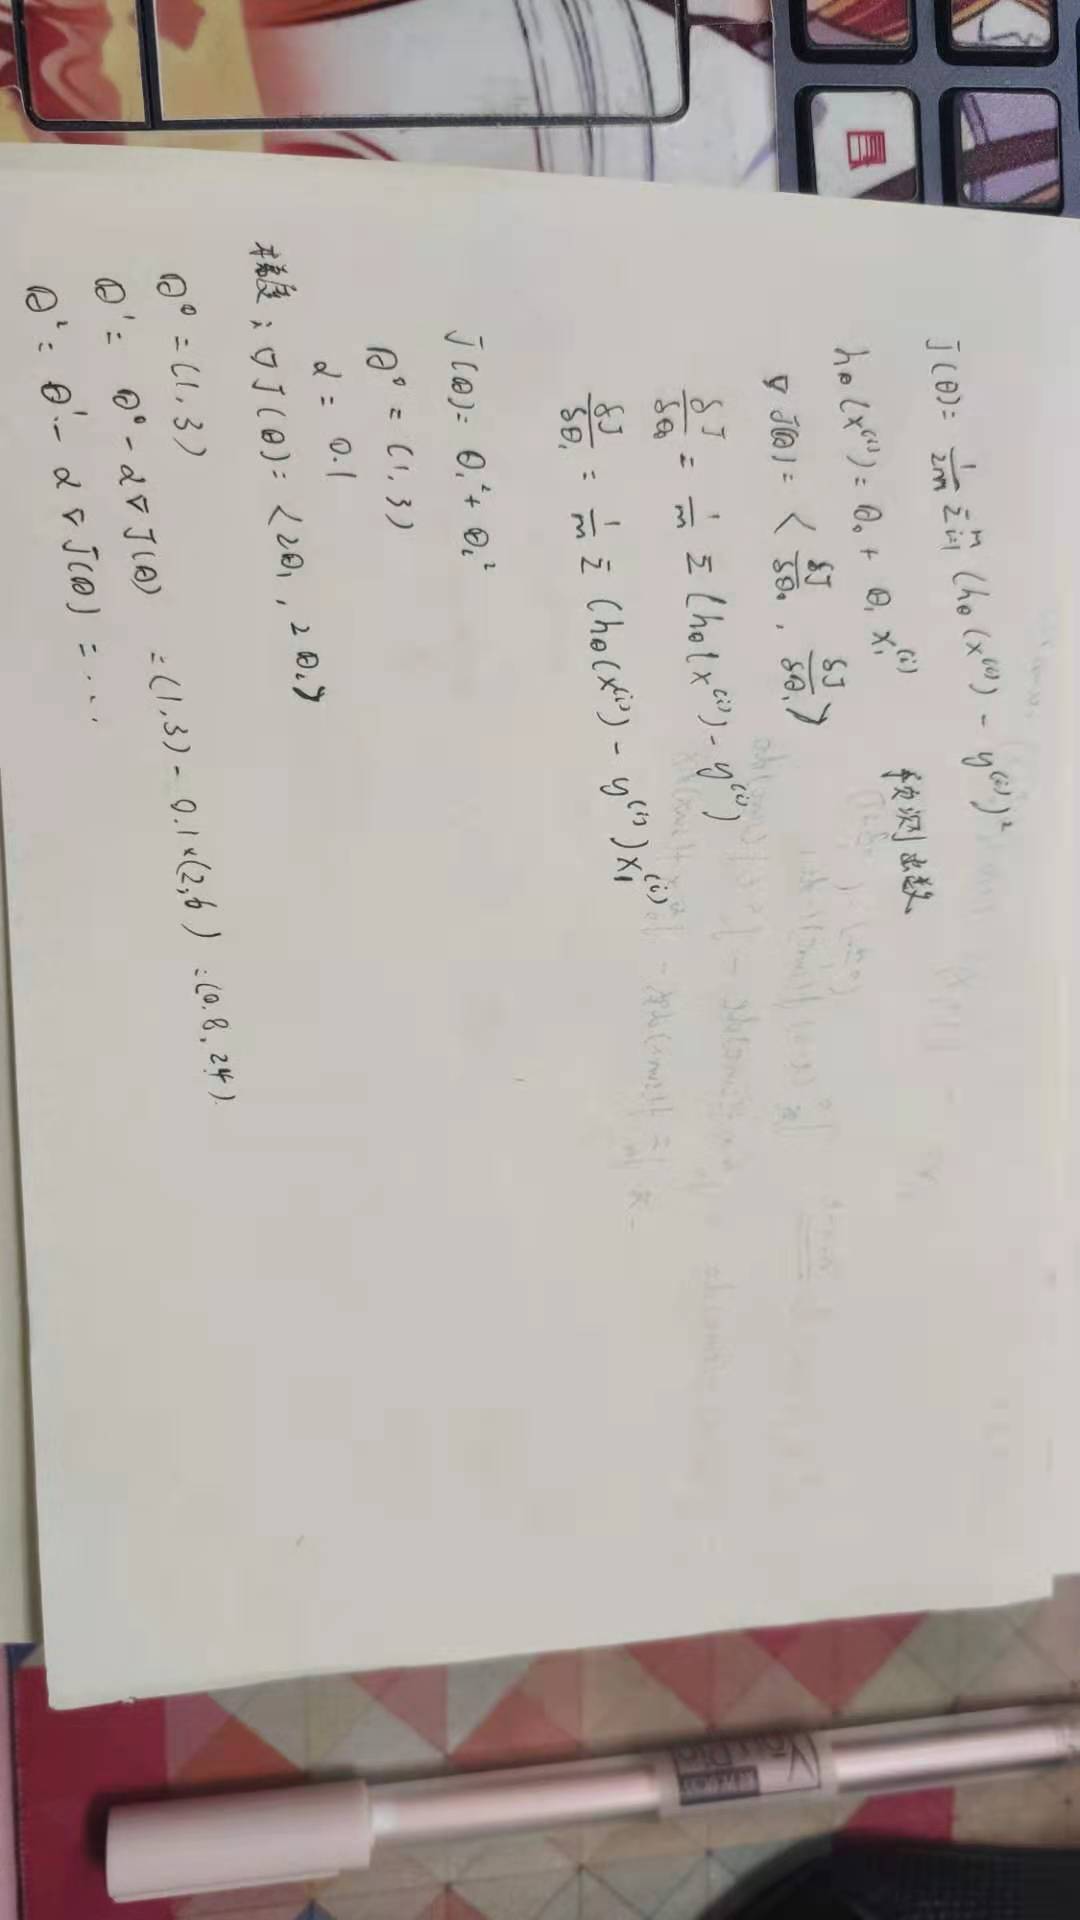 J(θ)= 1/2m Σᵢ₌₁ᵐ (hθ(x⁽ⁱ⁾) - y⁽ⁱ⁾)²
hθ(x⁽ⁱ⁾)= θ₀ + θ₁ x₁⁽ⁱ⁾ 预测函数
∇ J(θ)= ⟨ δJ/δθ₀ , δJ/δθ₁ ⟩
δJ/δθ₀ = 1/m Σ (hθ(x⁽ⁱ⁾) - y⁽ⁱ⁾)
δJ/δθ₁ = 1/m Σ (hθ(x⁽ⁱ⁾) - y⁽ⁱ⁾)x₁⁽ⁱ⁾
J(θ)= θ₁² + θ₂²
θ⁰ = (1, 3)
α = 0.1
梯度: ∇J(θ)= ⟨2θ₁ , 2θ₂⟩
θ⁰ = (1, 3)
θ¹ = θ⁰ - α∇J(θ) = (1, 3) - 0.1×(2,6) = (0.8, 2.4)
θ² = θ¹ - α∇J(θ) = ...